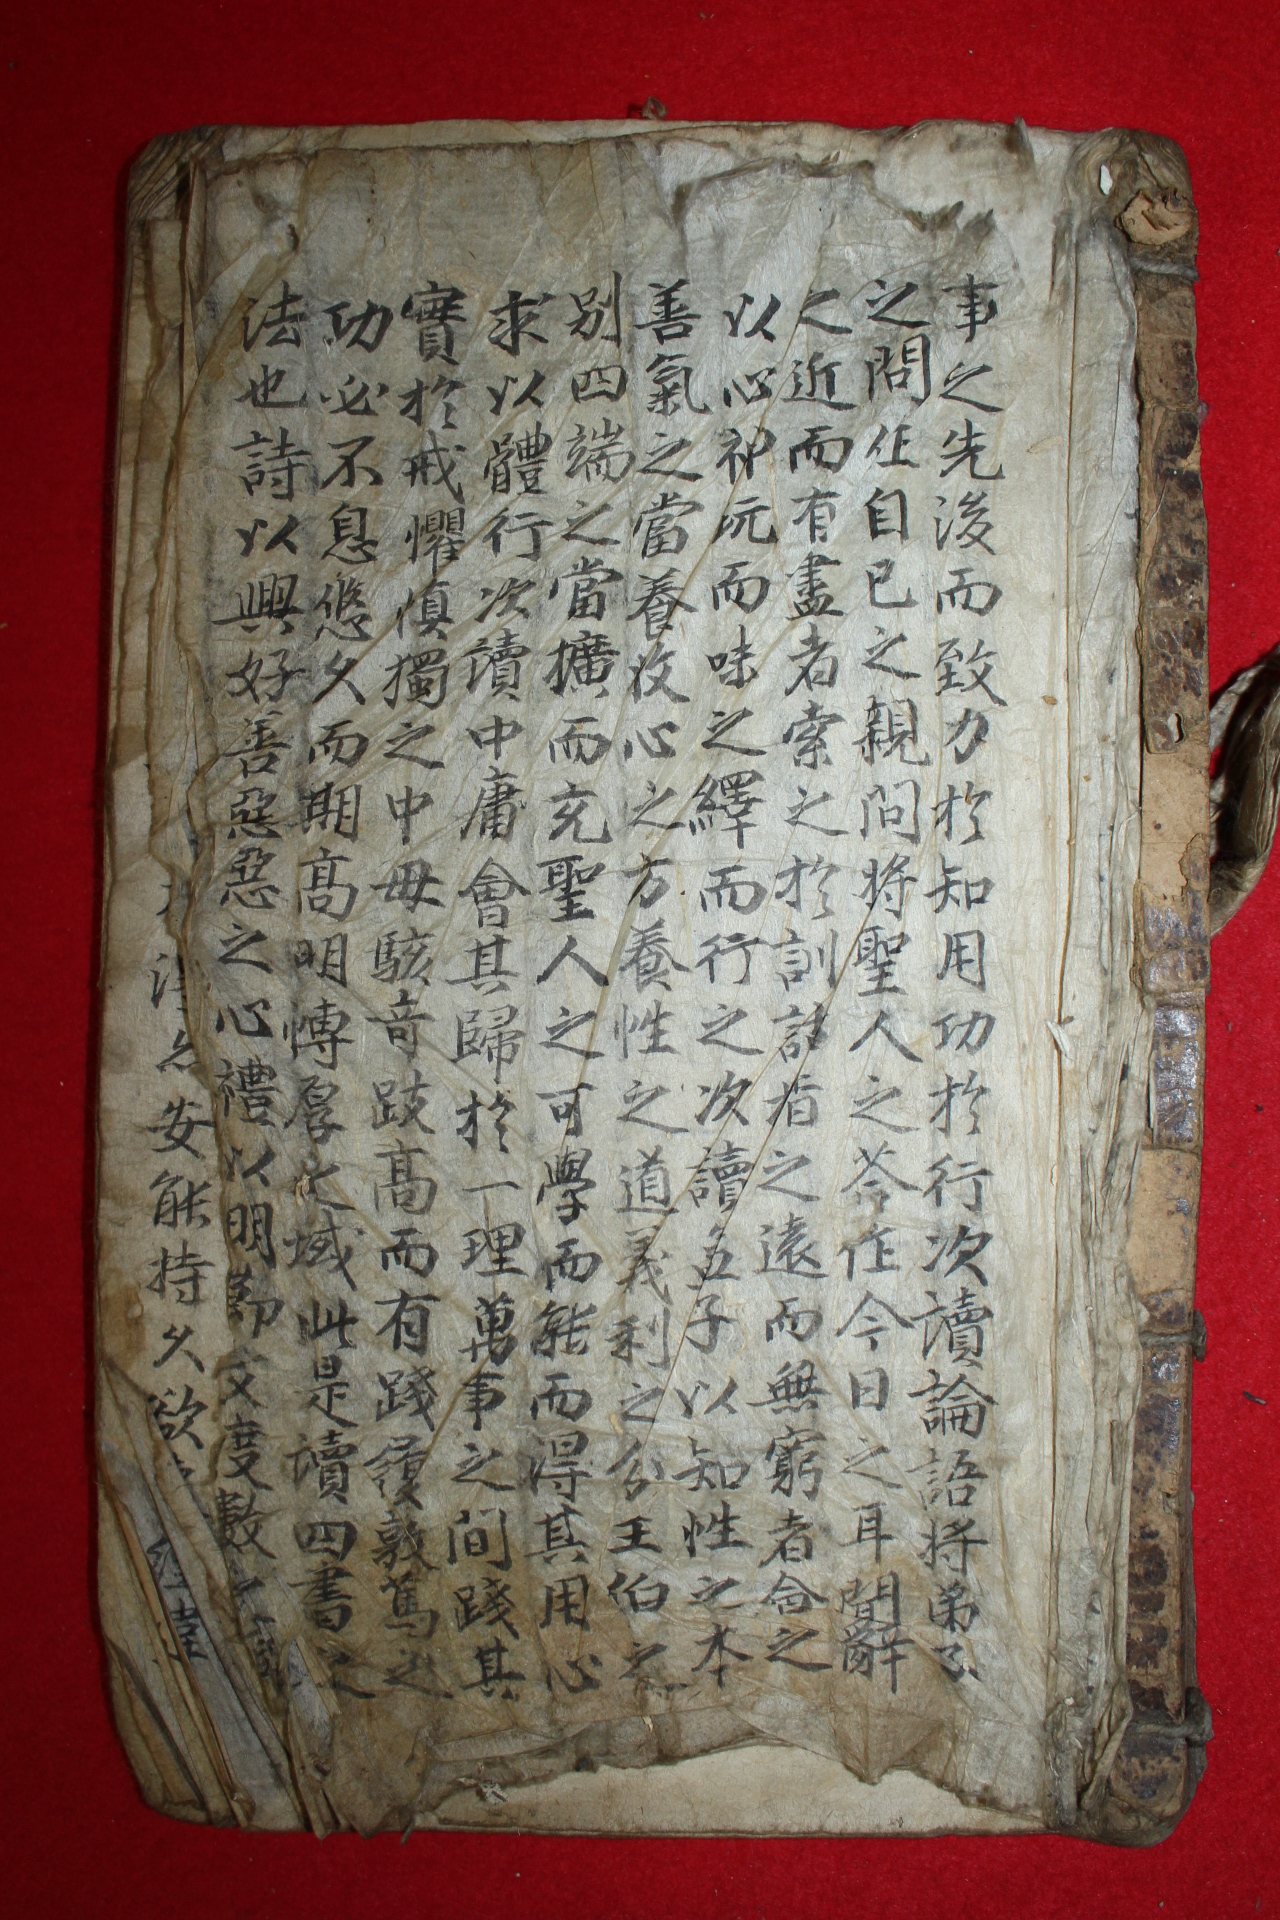 事之先後而致力於知用功於行次讀論語將弟子
之問作自己之親問將聖人之答作今日之耳聞辭
之近而有盡者索之於訓詁旨之遠而無窮者会之
以心神玩而味之繹而行之次讀孟子以知性之本
善氣之當養收心之方養性之道義利之分王伯之
別四端之當擴而充聖人之可學而能而得其用心
求以體行次讀中庸會其歸於一理萬事之間踐其
實於戒懼愼獨之中毋駭奇跂高而有踐履敦篤之
功必不息悠久而期高明博厚之域此是讀四書之
法也詩以興好善惡惡之心禮以明節文度數之
安能持久欲